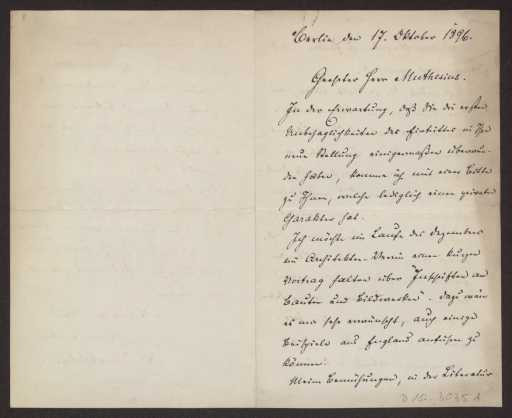 Berlin den 17. Oktober 1896.
Geehrter Herr Muthesius.
In der Erwartung, daß Sie die ersten
Unbehaglichkeiten des Eintrittes in Ihre
neue Stellung einigermaßen überwun-
den haben, komme ich mit einer Bitte
zu Ihnen, welche lediglich einen privaten
Charakter hat.
Ich möchte im Laufe des Dezembers
im Architekten-Verein einen kurzen
Vortrag halten über "Inschriften an
Bauten und Bildwerken". Dazu wäre
es mir sehr erwünscht, auch einige
Beispiele aus England anführen zu
können.
Meine Bemühungen, in der Literatur